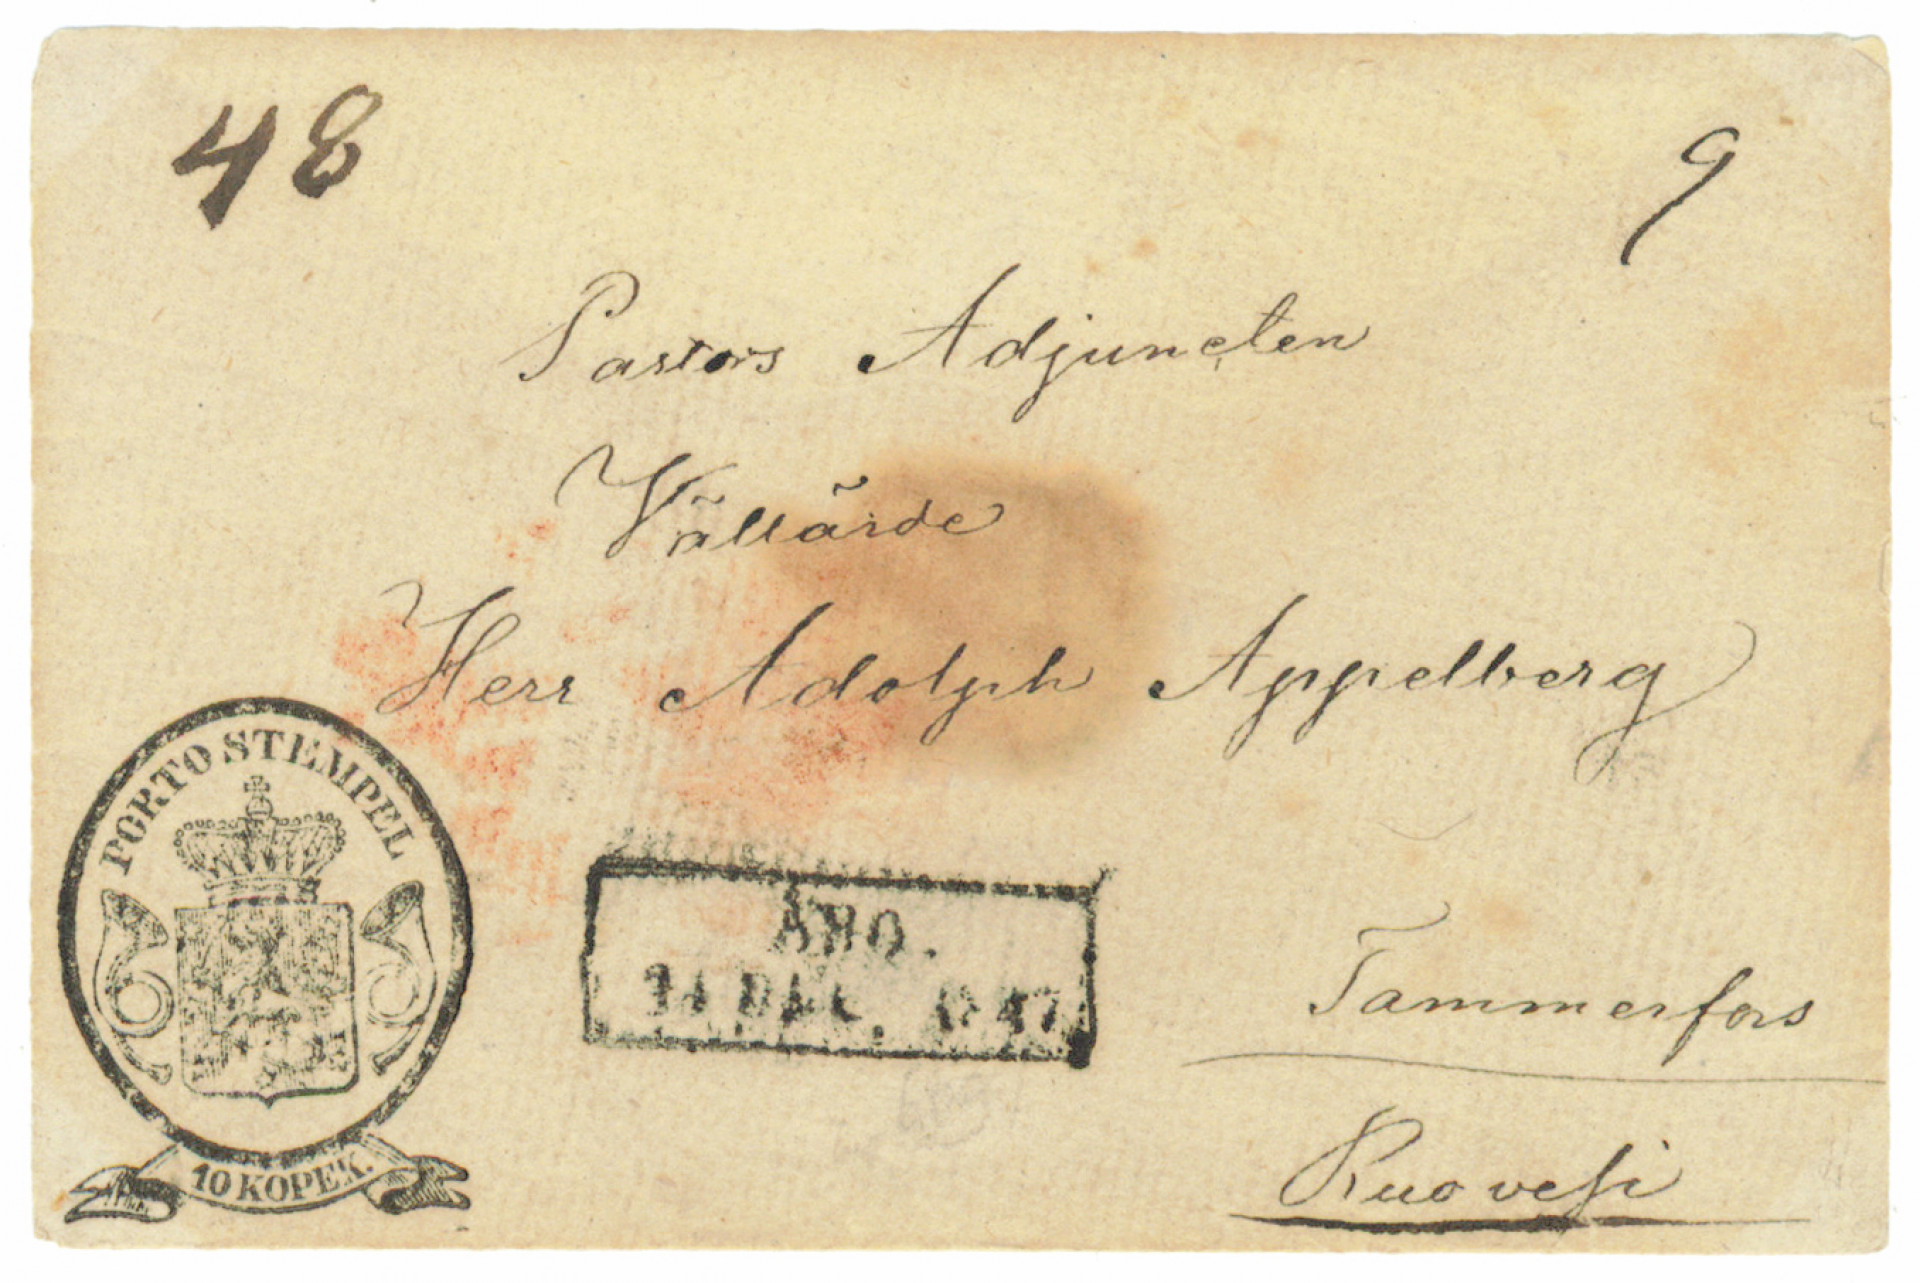 48
9
Pastors Adjuncten
Vällärde
Herr Adolph Appelberg
PORTO STEMPEL
10 KOPEK.
ÅBO.
14 DEC. 1847
Tammerfors
Ruovesi